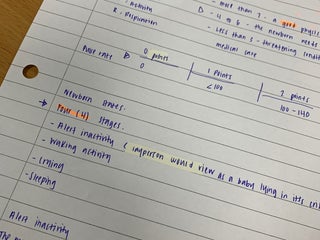 - more than 7 - a good physic
A - Activity
R - Respiration
D - 4 to 6 - the newborn needs
- Less than 3 - threatening condit
medical care
Pulse rate
0 points
0
1 points
<100
2 points
100 - 140
Newborn States.
→ Four (4) stages.
- Alert inactivity ( inperson would view as a baby lying in its cri
- Waking activity
- Crying
- Sleeping
Alert inactivity
The